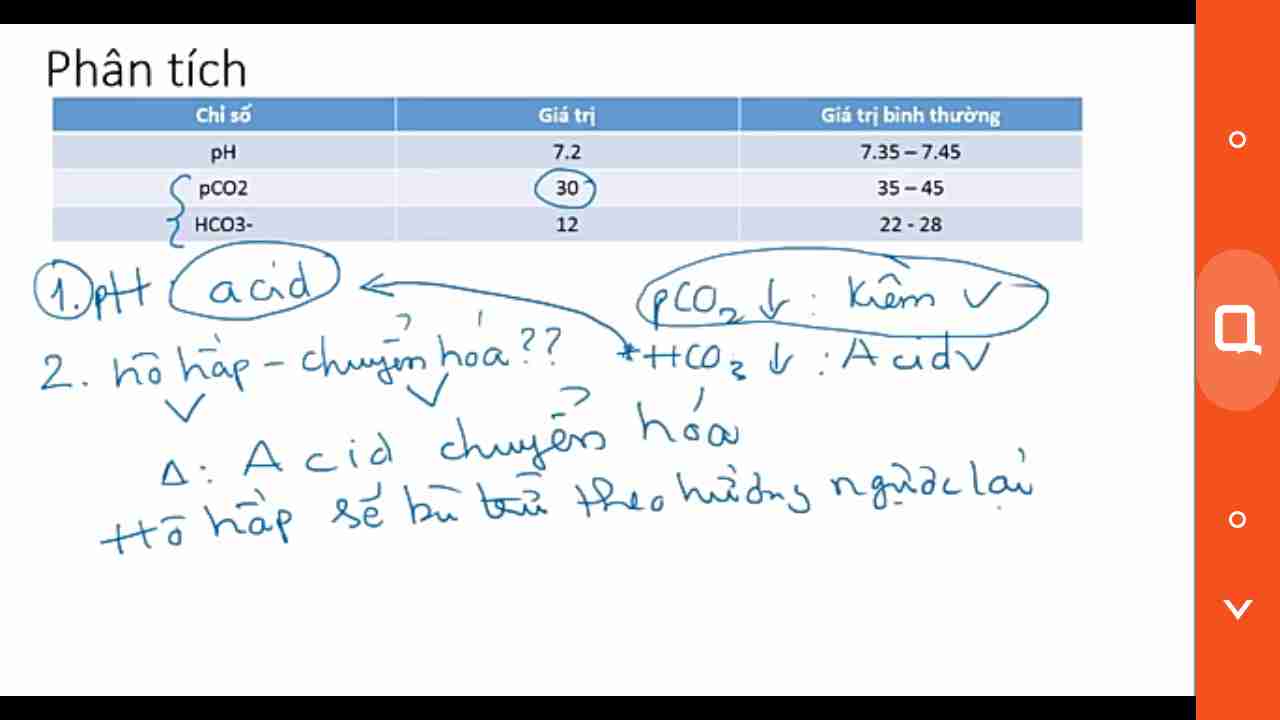 Phân tích
Chỉ số Giá trị Giá trị bình thường
pH 7.2 7.35 – 7.45
pCO2 30 35 – 45
HCO3- 12 22 - 28
1. pH acid
pCO2 ↓ : Kiềm ✓
2. hô hấp – chuyển hóa ??
*HCO3 ↓ : Acid ✓
Δ: Acid chuyển hóa
Hô hấp sẽ bù trừ theo hướng ngược lại